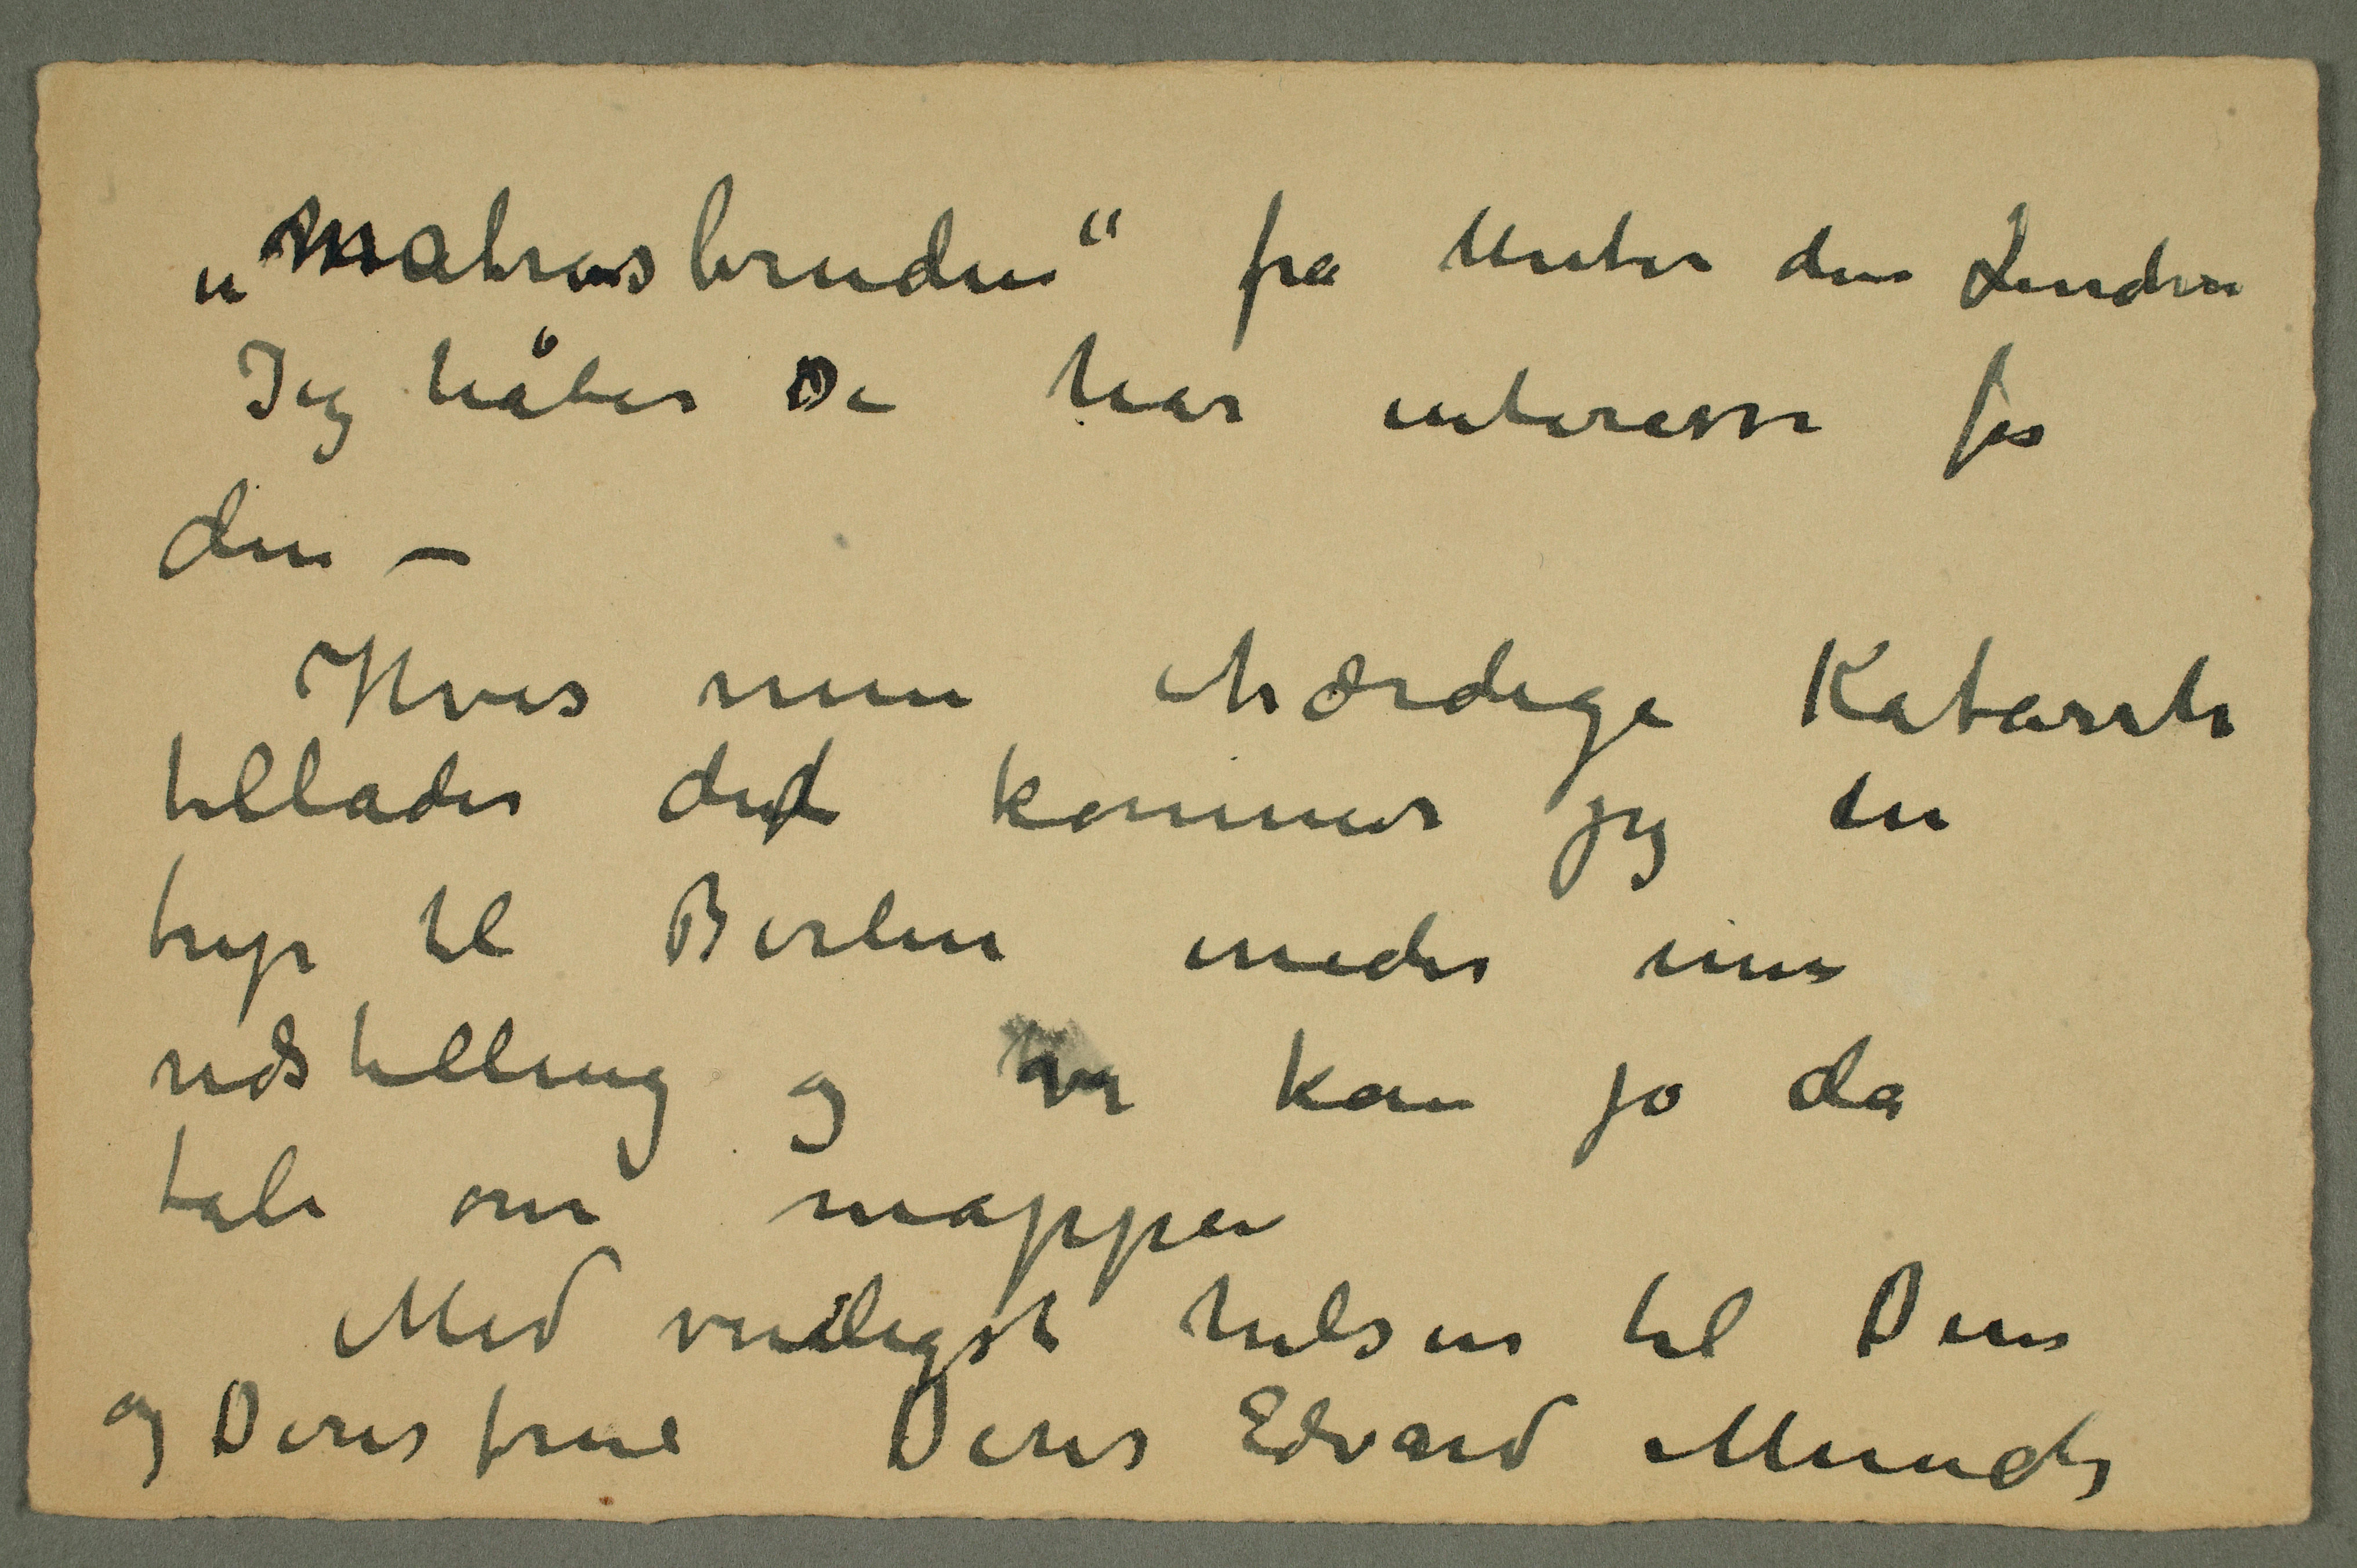 „Matrosbruden“ fra Unter den Linden
Jeg håber De har interesse for
den –
Hvis min ihærdige Katarrh
tillader det kommer jeg en
trip til Berlin under min
udstilling og vi kan jo da
tale om mappen
Med venligst hilsen til Dem
og Deres frue Deres Edvard Munch